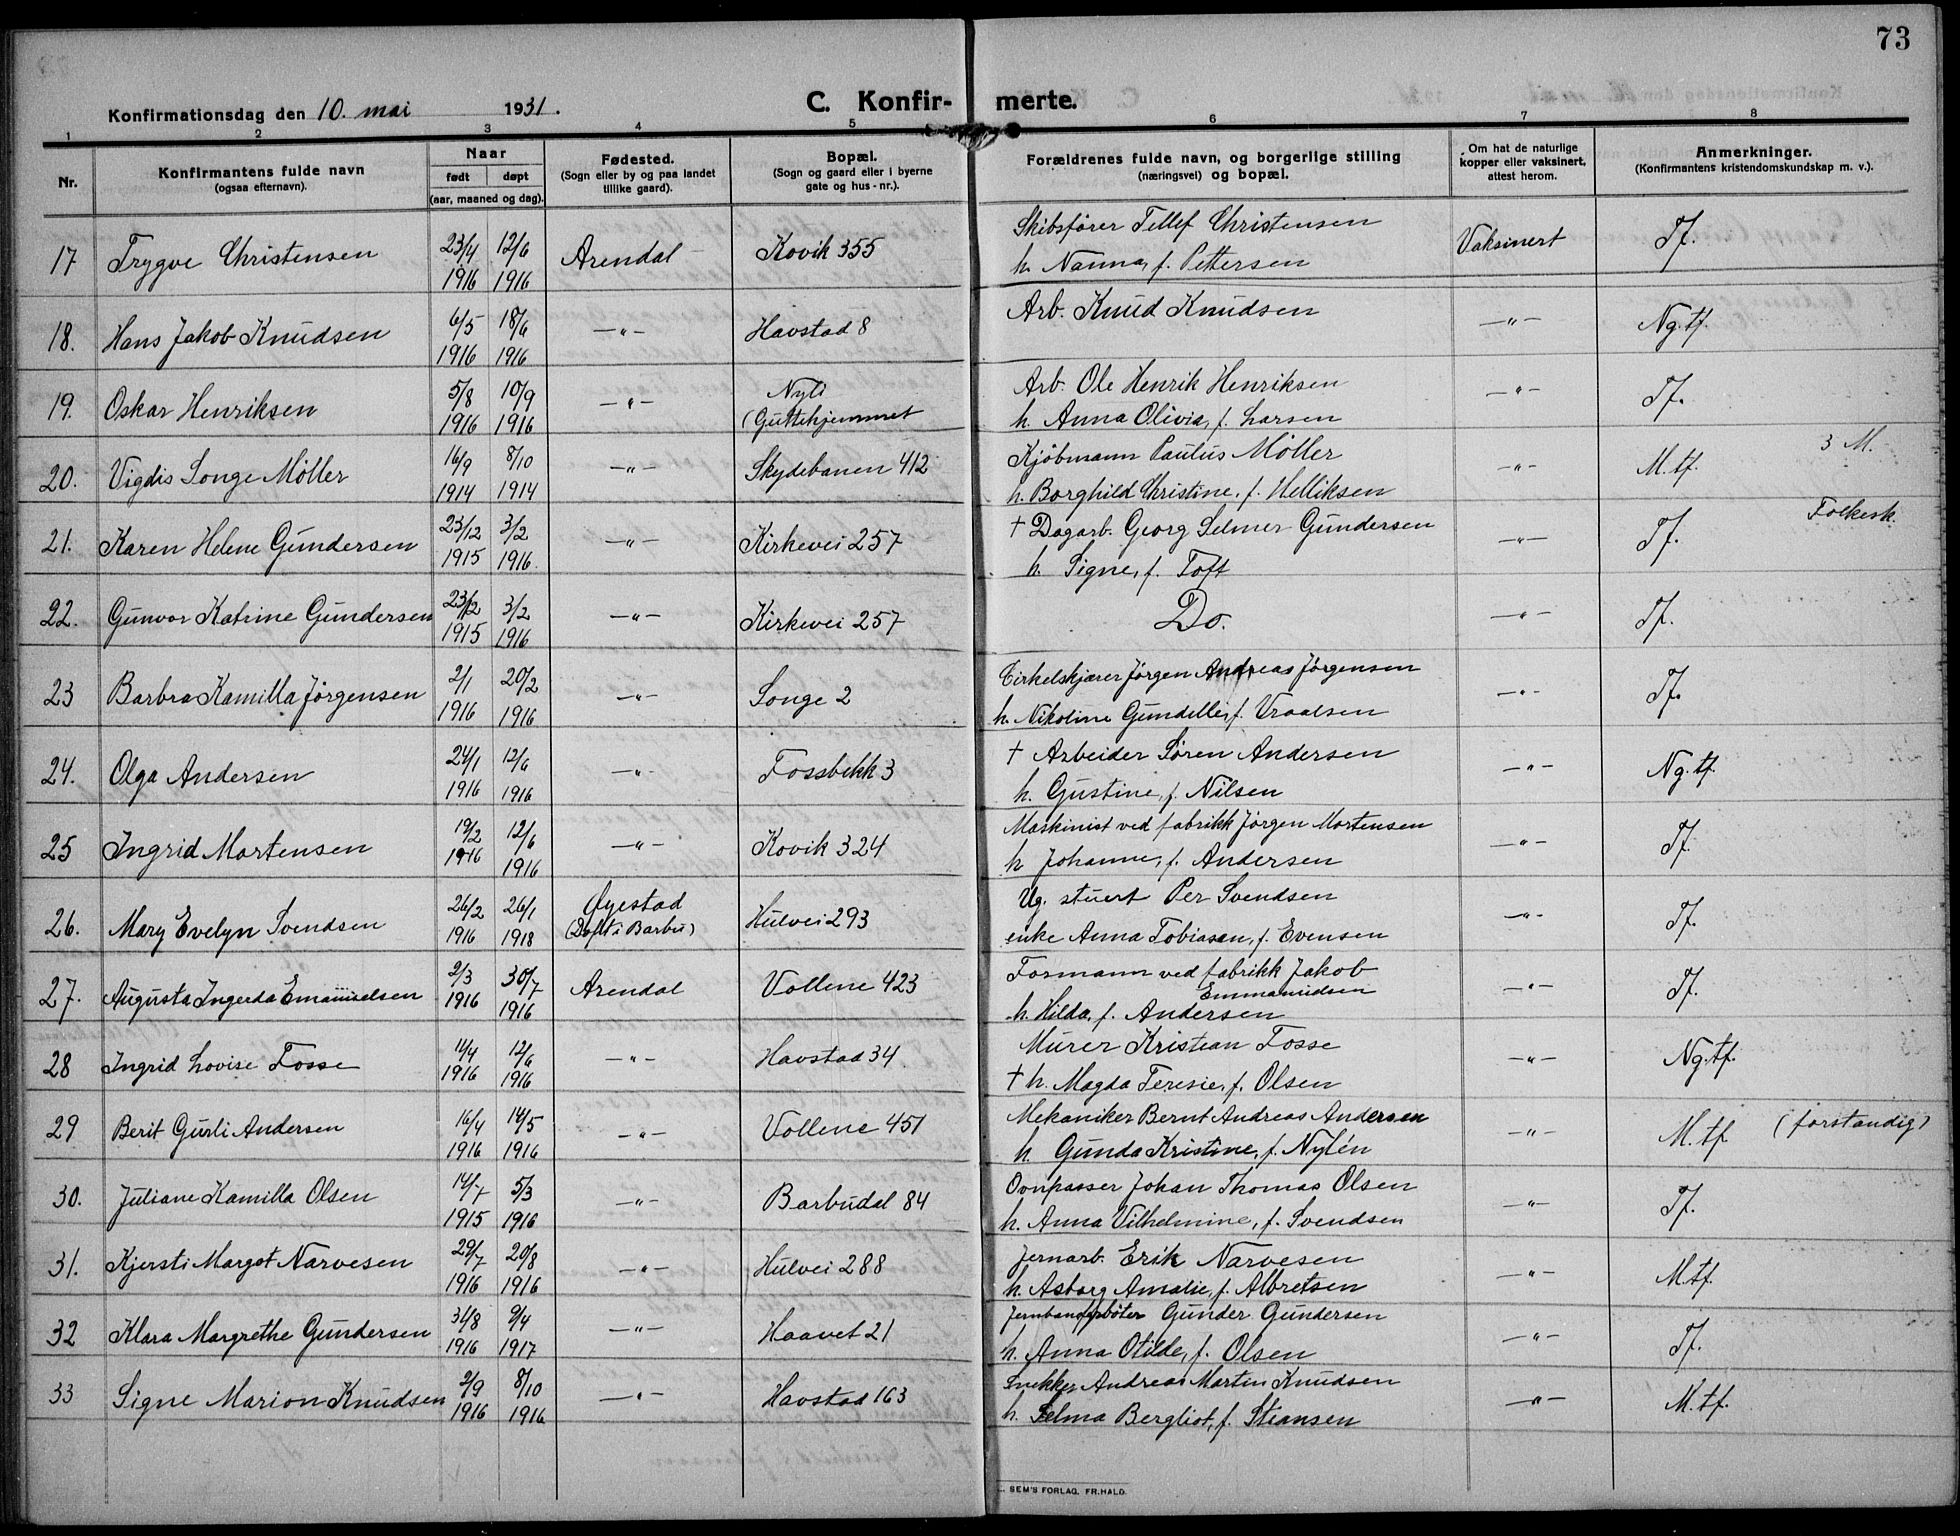 73
Konfirmationsdag den 10. mai 1931.
C. Konfir- merte.
1 2 3 4 5 6 7 8
Nr.
Konfirmantens fulde navn
(ogsaa efternavn).
Naar
født døpt
(aar, maaned og dag).
Fødested.
(Sogn eller by og paa landet
tillike gaard).
Bopæl.
(Sogn og gaard eller i byerne
gate og hus-nr.).
Forældrenes fulde navn, og borgerlige stilling
(næringsvei) og bopæl.
Om hat de naturlige
kopper eller vaksinert,
attest herom.
Anmerkninger.
(Konfirmantens kristendomskundskap m. v.).
17 Trygve Christensen 23/4 1916 12/6 1916 Arendal Kovik 355 Skibsfører Tellef Christensen Vaksinert Tf.
h. Nanna, f. Pettersen
18. Hans Jakob Knudsen 6/5 1916 18/6 1916 —"— Havstad 8 Arb. Knud Knudsen —"— Ng.tf.
19. Oskar Henriksen 5/8 1916 10/9 1916 —"— Nyli (Guttehjemmet Arb. Ole Henrik Henriksen —"— Tf.
h. Anna Olivia, f. Larsen
20. Vigdis Songe Møller 16/9 1914 8/10 1914 —"— Skydebanen 412 Kjøbmann Paulus Møller —"— M.tf. 3 M.
h. Borghild Christine, f. Helliksen
21. Karen Helene Gundersen 23/12 1915 3/2 1916. —"— Kirkevei 257 † Dagarb. Georg Selmer Gundersen —"— Tf. Folkesk.
h. Signe, f. Toft
22. Gunvor Katrine Gundersen 23/12 1915 3/2 1916 —"— Kirkevei 257 Do. —"— Tf.
23 Barbra Kamilla Jörgensen 2/1 1916 20/2 1916 —"— Songe 2 Cirkelskjærer Jörgen Andreas Jörgensen —"— Tf.
h. Nikoline Gundelle, f. Vraalsen
24. Olga Andersen 24/1 1916 12/6 1916 —"— Fossbekk 3 † Arbeider Søren Andersen —"— Ng.tf.
h. Gustine, f. Nilsen
25 Ingrid Mortensen 19/2 1916 12/6 1916 —"— Kovik 324 Maskinist ved fabrikk Jörgen Mortensen —"— Tf.
h Johanne, f. Andersen
26. Mary Evelyn Svendsen 26/2 1916 26/1 1918 Øyestad (Døpt i Barbu) Hulvei 293 Ug. stuert Per Svendsen —"— Tf.
enke Anna Tobiasen, f. Evensen
27. Augusta Ingerda Emanuelsen 2/3 1916 30/7 1916 Arendal Vollene 423 Formann ved fabrikk Jakob Emmanuelsen —"— Tf.
h. Hilda, f. Andersen
28 Ingrid Lovise Fosse 11/4 1916 12/6 1916 —"— Havstad 34 Murer Kristian Fosse —"— Ng.tf.
† h. Magda Teresie, f. Olsen
29 Berit Gurli Andersen 16/4 1916 14/5 1916 —"— Vollene 451 Mekaniker Bernt Andreas Andersen —"— M.tf (forstandig)
h. Gunda Kristine, f. Nylén
30. Juliane Kamilla Olsen 14/7 1915 5/3 1916 —"— Barbudal 84 Ovnpasser Johan Thomas Olsen —"— Tf.
h. Anna Vilhelmine, f. Svendsen
31. Kjersti Margot Narvesen 29/7 1916 20/8 1916 —"— Hulvei 288 Jernarb. Erik Narvesen —"— M.tf.
h. Asborg Amalie, f. Albretsen
32 Klara Margrethe Gundersen 31/8 1916 9/4 1917 —"— Haavet 21 Gunder Gundersen —"— Tf.
h. Anna Otilde, f. Olsen
33 Signe Marion Knudsen 2/9 1916 8/10 1916 —"— Havstad 163 Snekker Andreas Martin Knudsen —"— M.tf.
h. Selma Bergliot, f. Steansen
SEM'S FORLAG, FR.HALD.